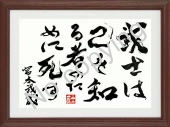 武士は
己を知
る者のた
めに死す